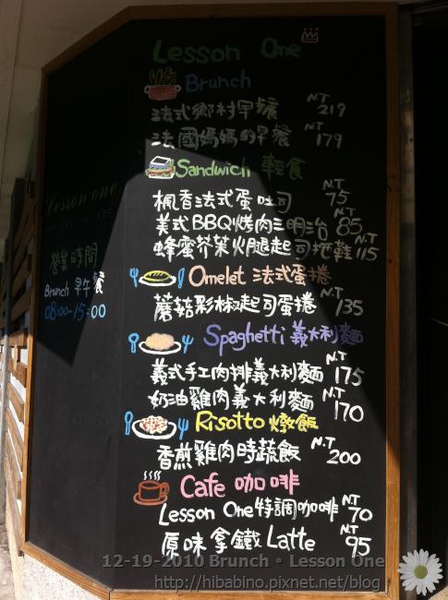 Lesson One
Brunch
法式鄉村早餐 NT 219
法國媽媽的早餐 NT 179
Sandwich 輕食
楓香法式蛋吐司 NT 75
美式BBQ烤肉三明治 NT 85
蜂蜜芥茉火腿起司拖鞋 NT 115
Omelet 法式蛋捲
蘑菇彩椒起司蛋捲 NT 135
Spaghetti 義大利麵
義式手工肉排義大利麵 NT 175
奶油雞肉義大利麵 NT 170
Risotto 燉飯
香煎雞肉時蔬飯 NT 200
Cafe 咖啡
Lesson One特調咖啡 NT 70
原味拿鐵Latte NT 95
Lesson one
營業時間
Brunch 早午餐
08:00-15:00
12-19-2010 Brunch • Lesson One
http://hibabino.pixnet.net/blog